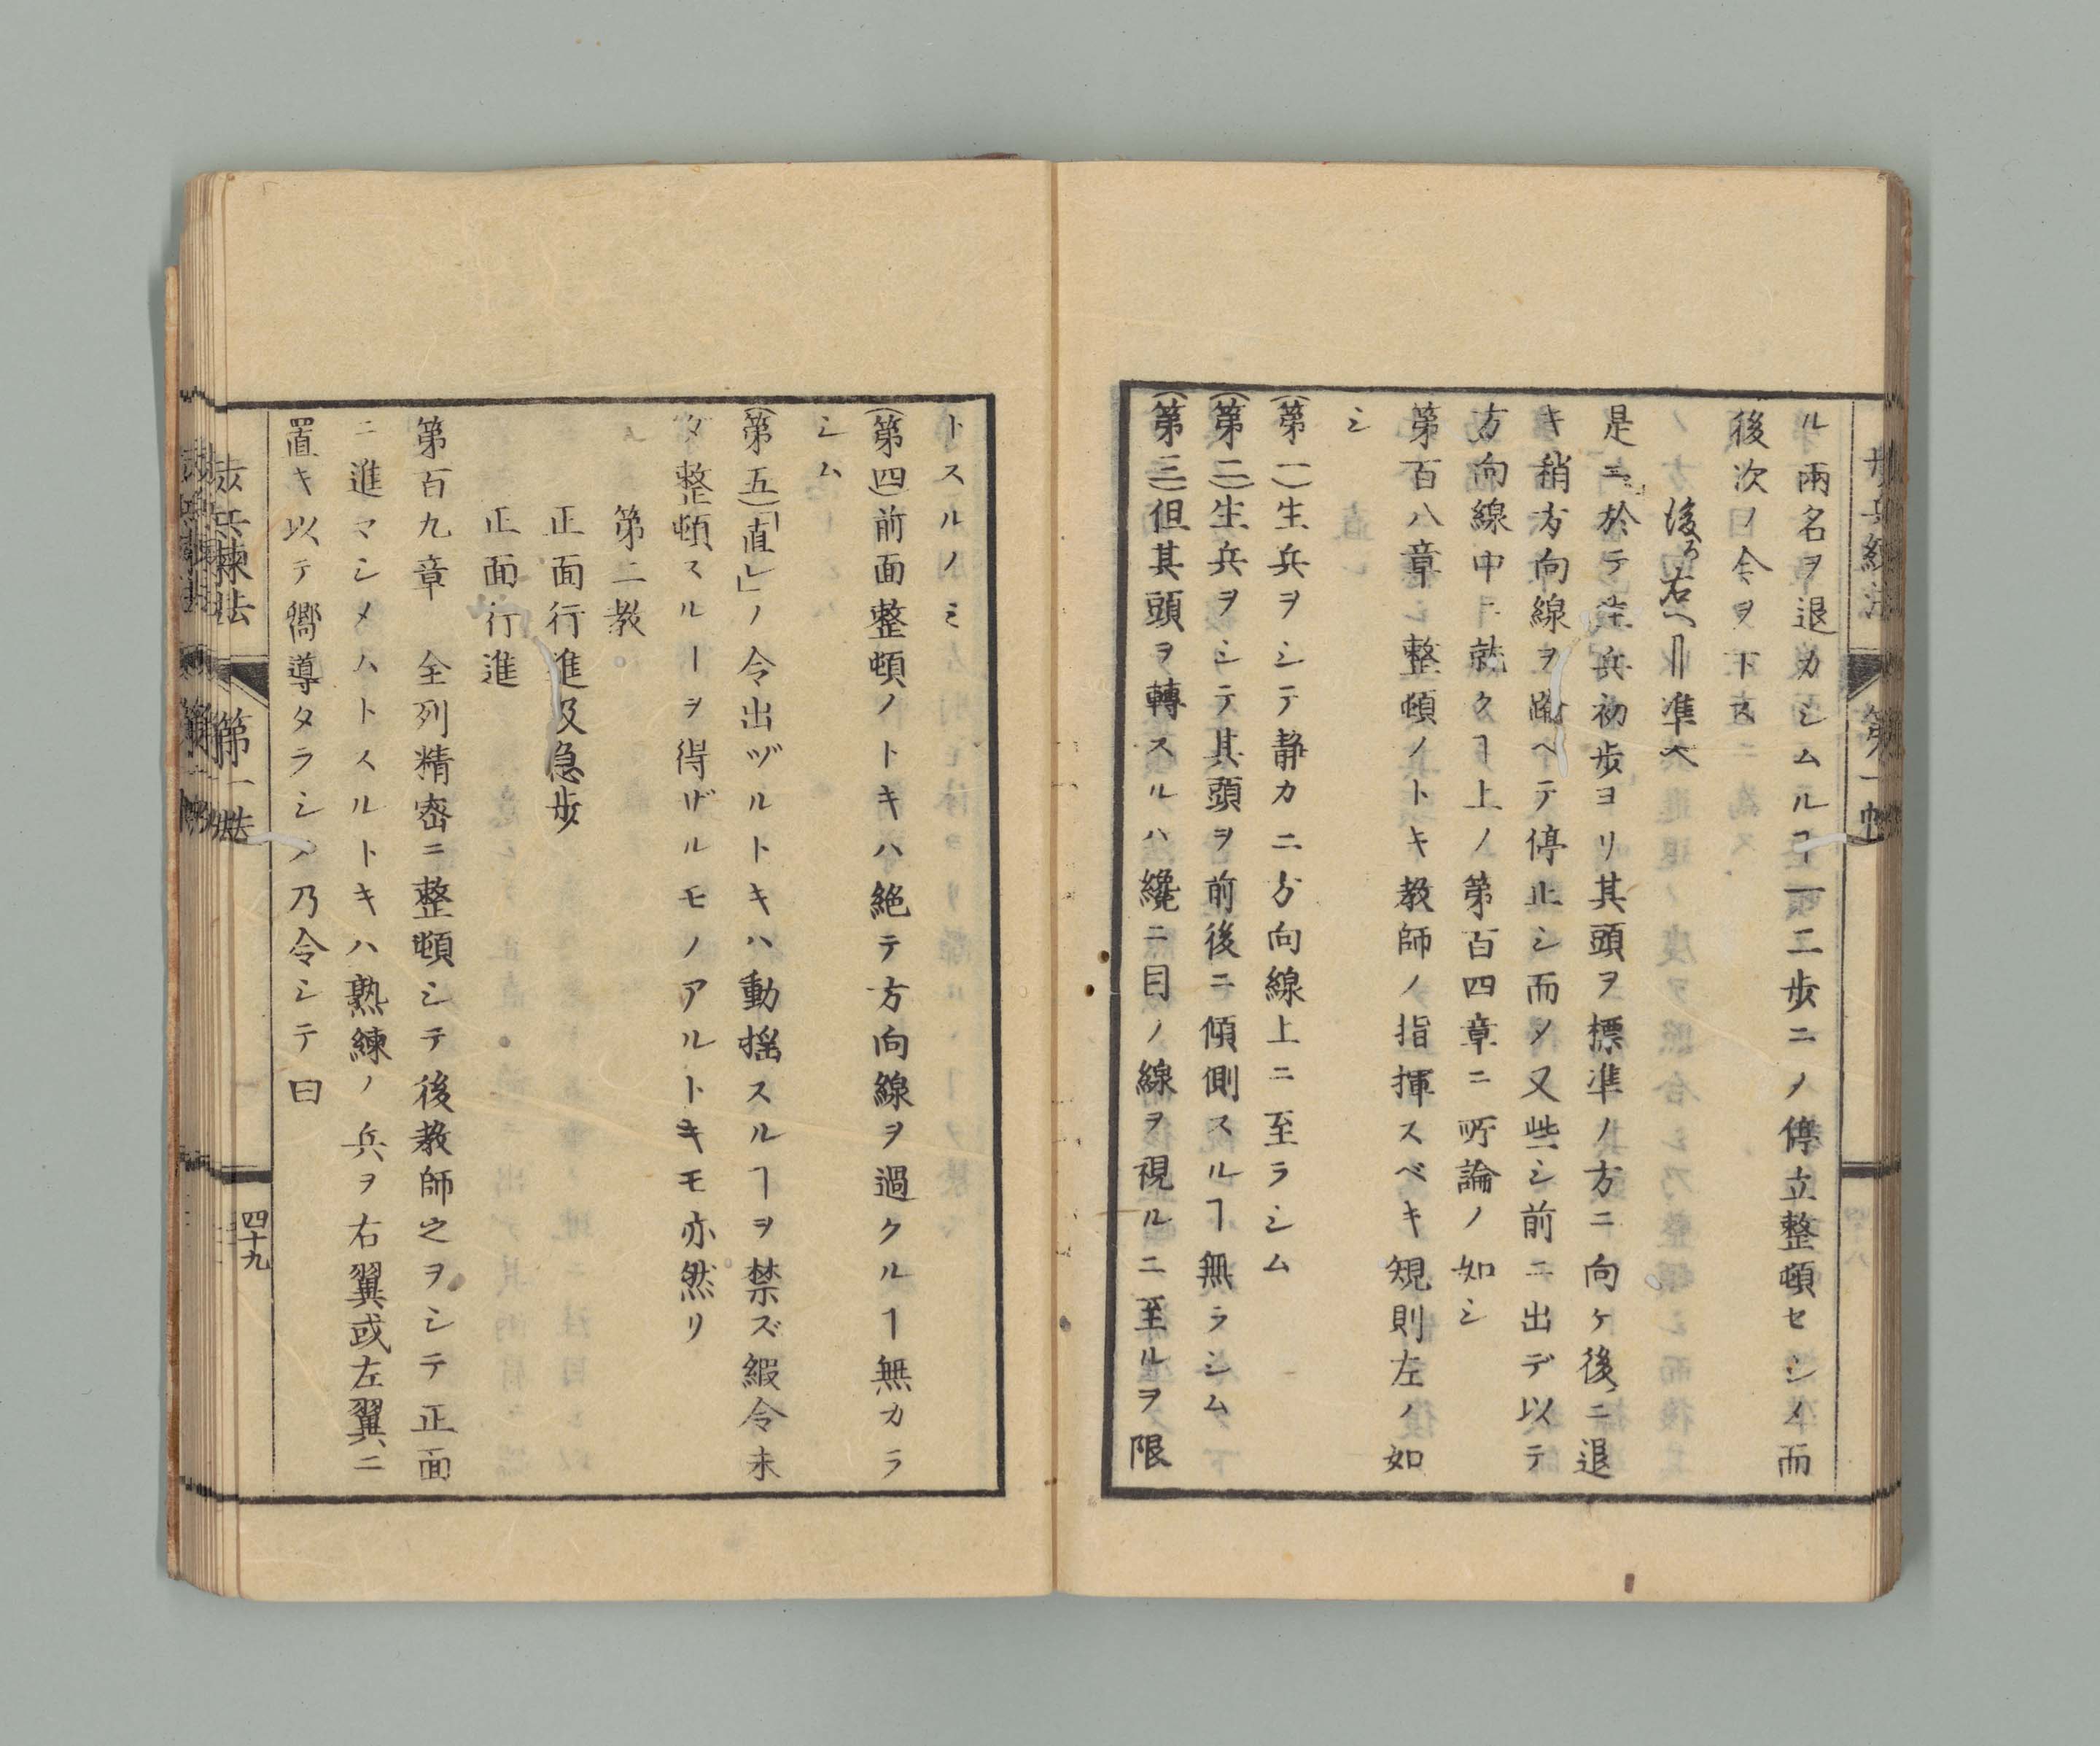 ル兩名ヲ退カシムルヿ一二歩ニノ停立整頓セシメ而
後次ノ令ヲ下ス
後ろ右へ‖準へ
是ニ於テ生兵初歩ヨリ其頭ヲ標準ノ方ニ向ケ後ニ退
キ稍方向線ヲ踰ヘテ停止シ而〆又些シ前ニ出デ以テ
方向線中ニ就クヿ上ノ第百四章ニ所論ノ如シ
第百八章 整頓ノトキ教師ノ指揮スベキ規則左ノ如
シ
(第一)生兵ヲシテ静カニ方向線上ニ至ラシム
(第二)生兵ヲシテ其頭ヲ前後ニ傾側スルヿ無ラシム
(第三)但其頭ヲ轉スルハ纔ニ目ノ線ヲ視ルニ至ルヲ限
トスルノミ
(第四)前面整頓ノトキハ絶テ方向線ヲ過クルヿ無カラ
シム
(第五)「直レ」ノ令出ヅルトキハ動揺スルヿヲ禁ズ縦令未
タ整頓スルヿヲ得ザルモノアルトキモ亦然リ
第二教
正面行進及急歩
正面行進
第百九章 全列精密ニ整頓シテ後教師之ヲシテ正面
ニ進マシメントスルトキハ熟練ノ兵ヲ右翼或左翼ニ
置キ以テ嚮導タラシメ乃令シテ曰
歩兵練法 第一 四十九